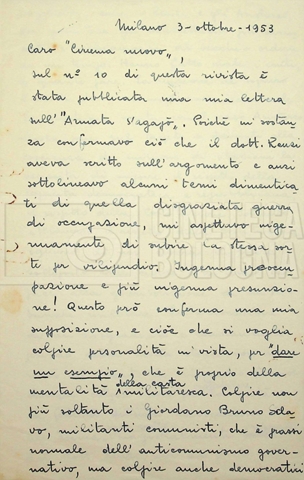 Milano 3-ottobre-1953
Caro "Cinema nuovo",
sul nº 10 di questa rivista è
stata pubblicata una mia lettera
sull'"Armata s'agapò". Poichè in sostan
za confermavo ciò che il dott. Renzi
aveva scritto sull'argomento e anzi
sottolineavo alcuni temi dimentica
ti di quella disgraziata guerra
di occupazione, mi aspettavo inge-
nuamente di subire la stessa sor-
te per vilipendio. Ingenua preoccu-
pazione e più ingenua presunzio-
ne! Questo però conferma una mia
supposizione, e cioè che si voglia
colpire personalità in vista, per "dare
un esempio", che è proprio della
mentalità della casta militaresca. Colpire non
più soltanto i Giordano Bruno Sola-
vo, militanti comunisti, che è prassi
normale dell'anticomunismo gover-
nativo, ma colpire anche democratici